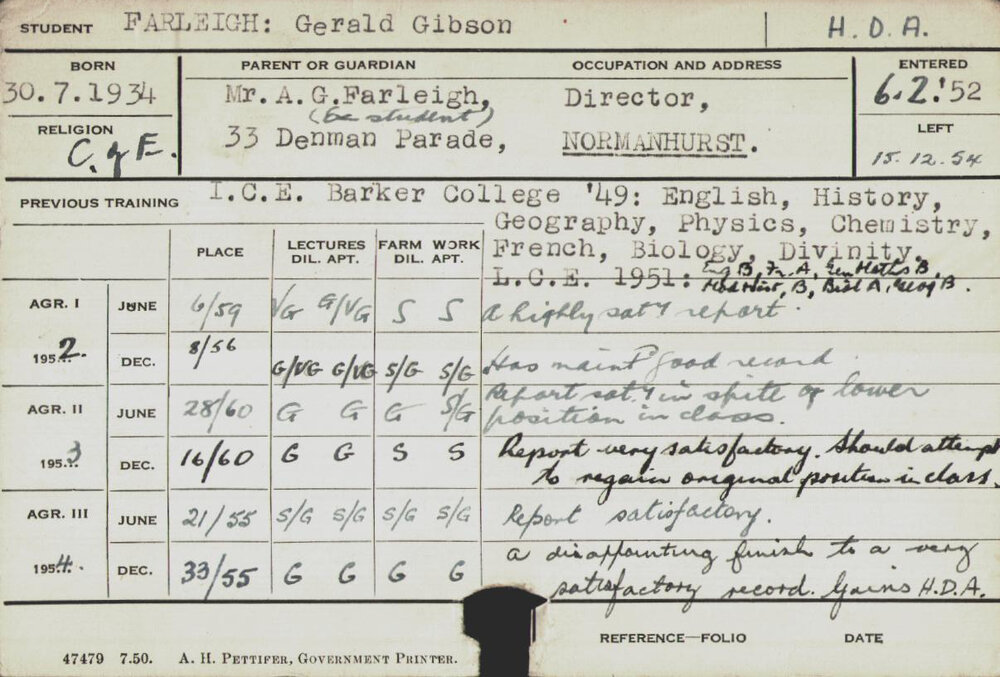 STUDENT FARLEIGH: Gerald Gibson H.D.A.
BORN PARENT OR GUARDIAN OCCUPATION AND ADDRESS ENTERED
30.7.1934 Mr. A.G.Farleigh, Director, 6.2.'52
(Ex student)
RELIGION 33 Denman Parade, NORMANHURST. LEFT
C. of E. 15.12.54
PREVIOUS TRAINING I.C.E. Barker College '49: English, History,
Geography, Physics, Chemistry,
French, Biology, Divinity.
L.C.E. 1951: Eng B, Fr. A, Gen Maths B,
Mod Hist, B, Biol A, Geog B.
PLACE LECTURES FARM WORK
DIL. APT. DIL. APT.
AGR. I JUNE 6/59 VG G/VG S S A highly sat y report.
1952. DEC. 8/56 G/VG G/VG S/G S/G Has maint d good record
AGR. II JUNE 28/60 G G G S/G Report sat. y in spite of lower
position in class.
1953 DEC. 16/60 G G S S Report very satisfactory. Should attempt
to regain original position in class.
AGR. III JUNE 21/55 S/G S/G S/G S/G Report satisfactory.
1954. DEC. 33/55 G G G G A disappointing finish to a very
satisfactory record. Gains H.D.A.
REFERENCE—FOLIO DATE
47479 7.50. A. H. PETTIFER, GOVERNMENT PRINTER.